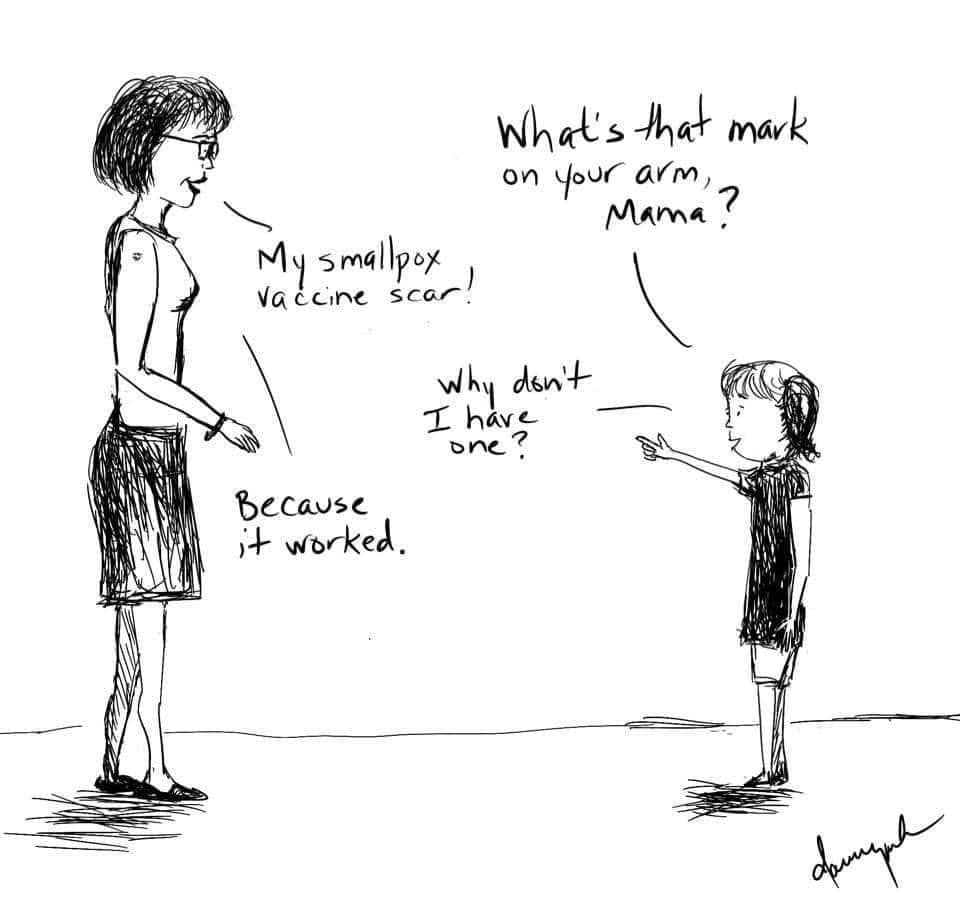 What's that mark
on your arm,
Mama?
My smallpox
vaccine scar!
Why don't
I have
one?
Because
it worked.